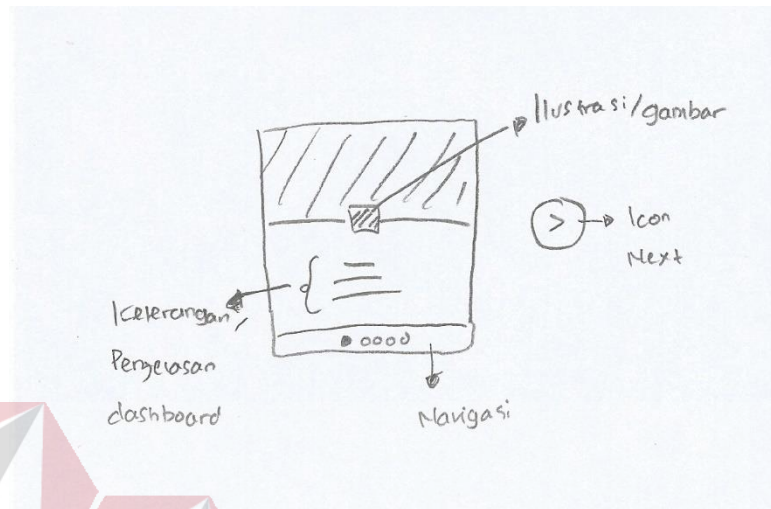 Ilustrasi/gambar
>
Icon
Next
Keterangan,
Penjelasan
dashboard
Navigasi